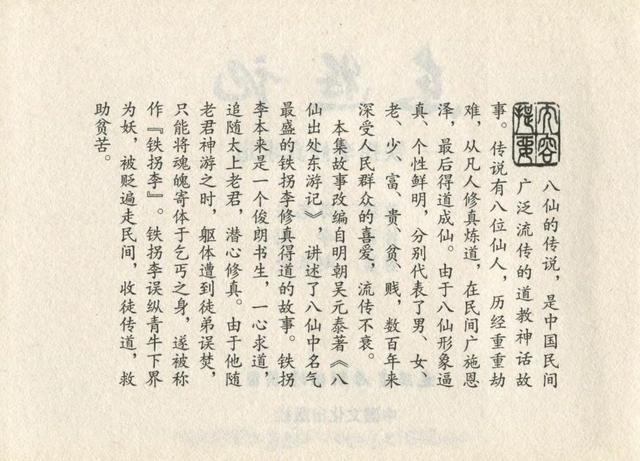 内容提要
八仙的传说，是中国民间
广泛流传的道教神话故
事。传说有八位仙人，历经重重劫
难，从凡人修真炼道，在民间广施恩
泽，最后得道成仙。由于八仙形象逼
真、个性鲜明，分别代表了男、女、
老、少、富、贵、贫、贱，数百年来
深受人民群众的喜爱，流传不衰。
本集故事改编自明朝吴元泰著《八
仙出处东游记》，讲述了八仙中名气
最盛的铁拐李修真得道的故事。铁拐
李本来是一个俊朗书生，一心求道，
追随太上老君，潜心修真。由于他随
老君神游之时，躯体遭到徒弟误焚，
只能将魂魄寄体于乞丐之身，遂被称
作『铁拐李』。铁拐李误纵青牛下界
为妖，被贬遍走民间，收徒传道，救
助贫苦。